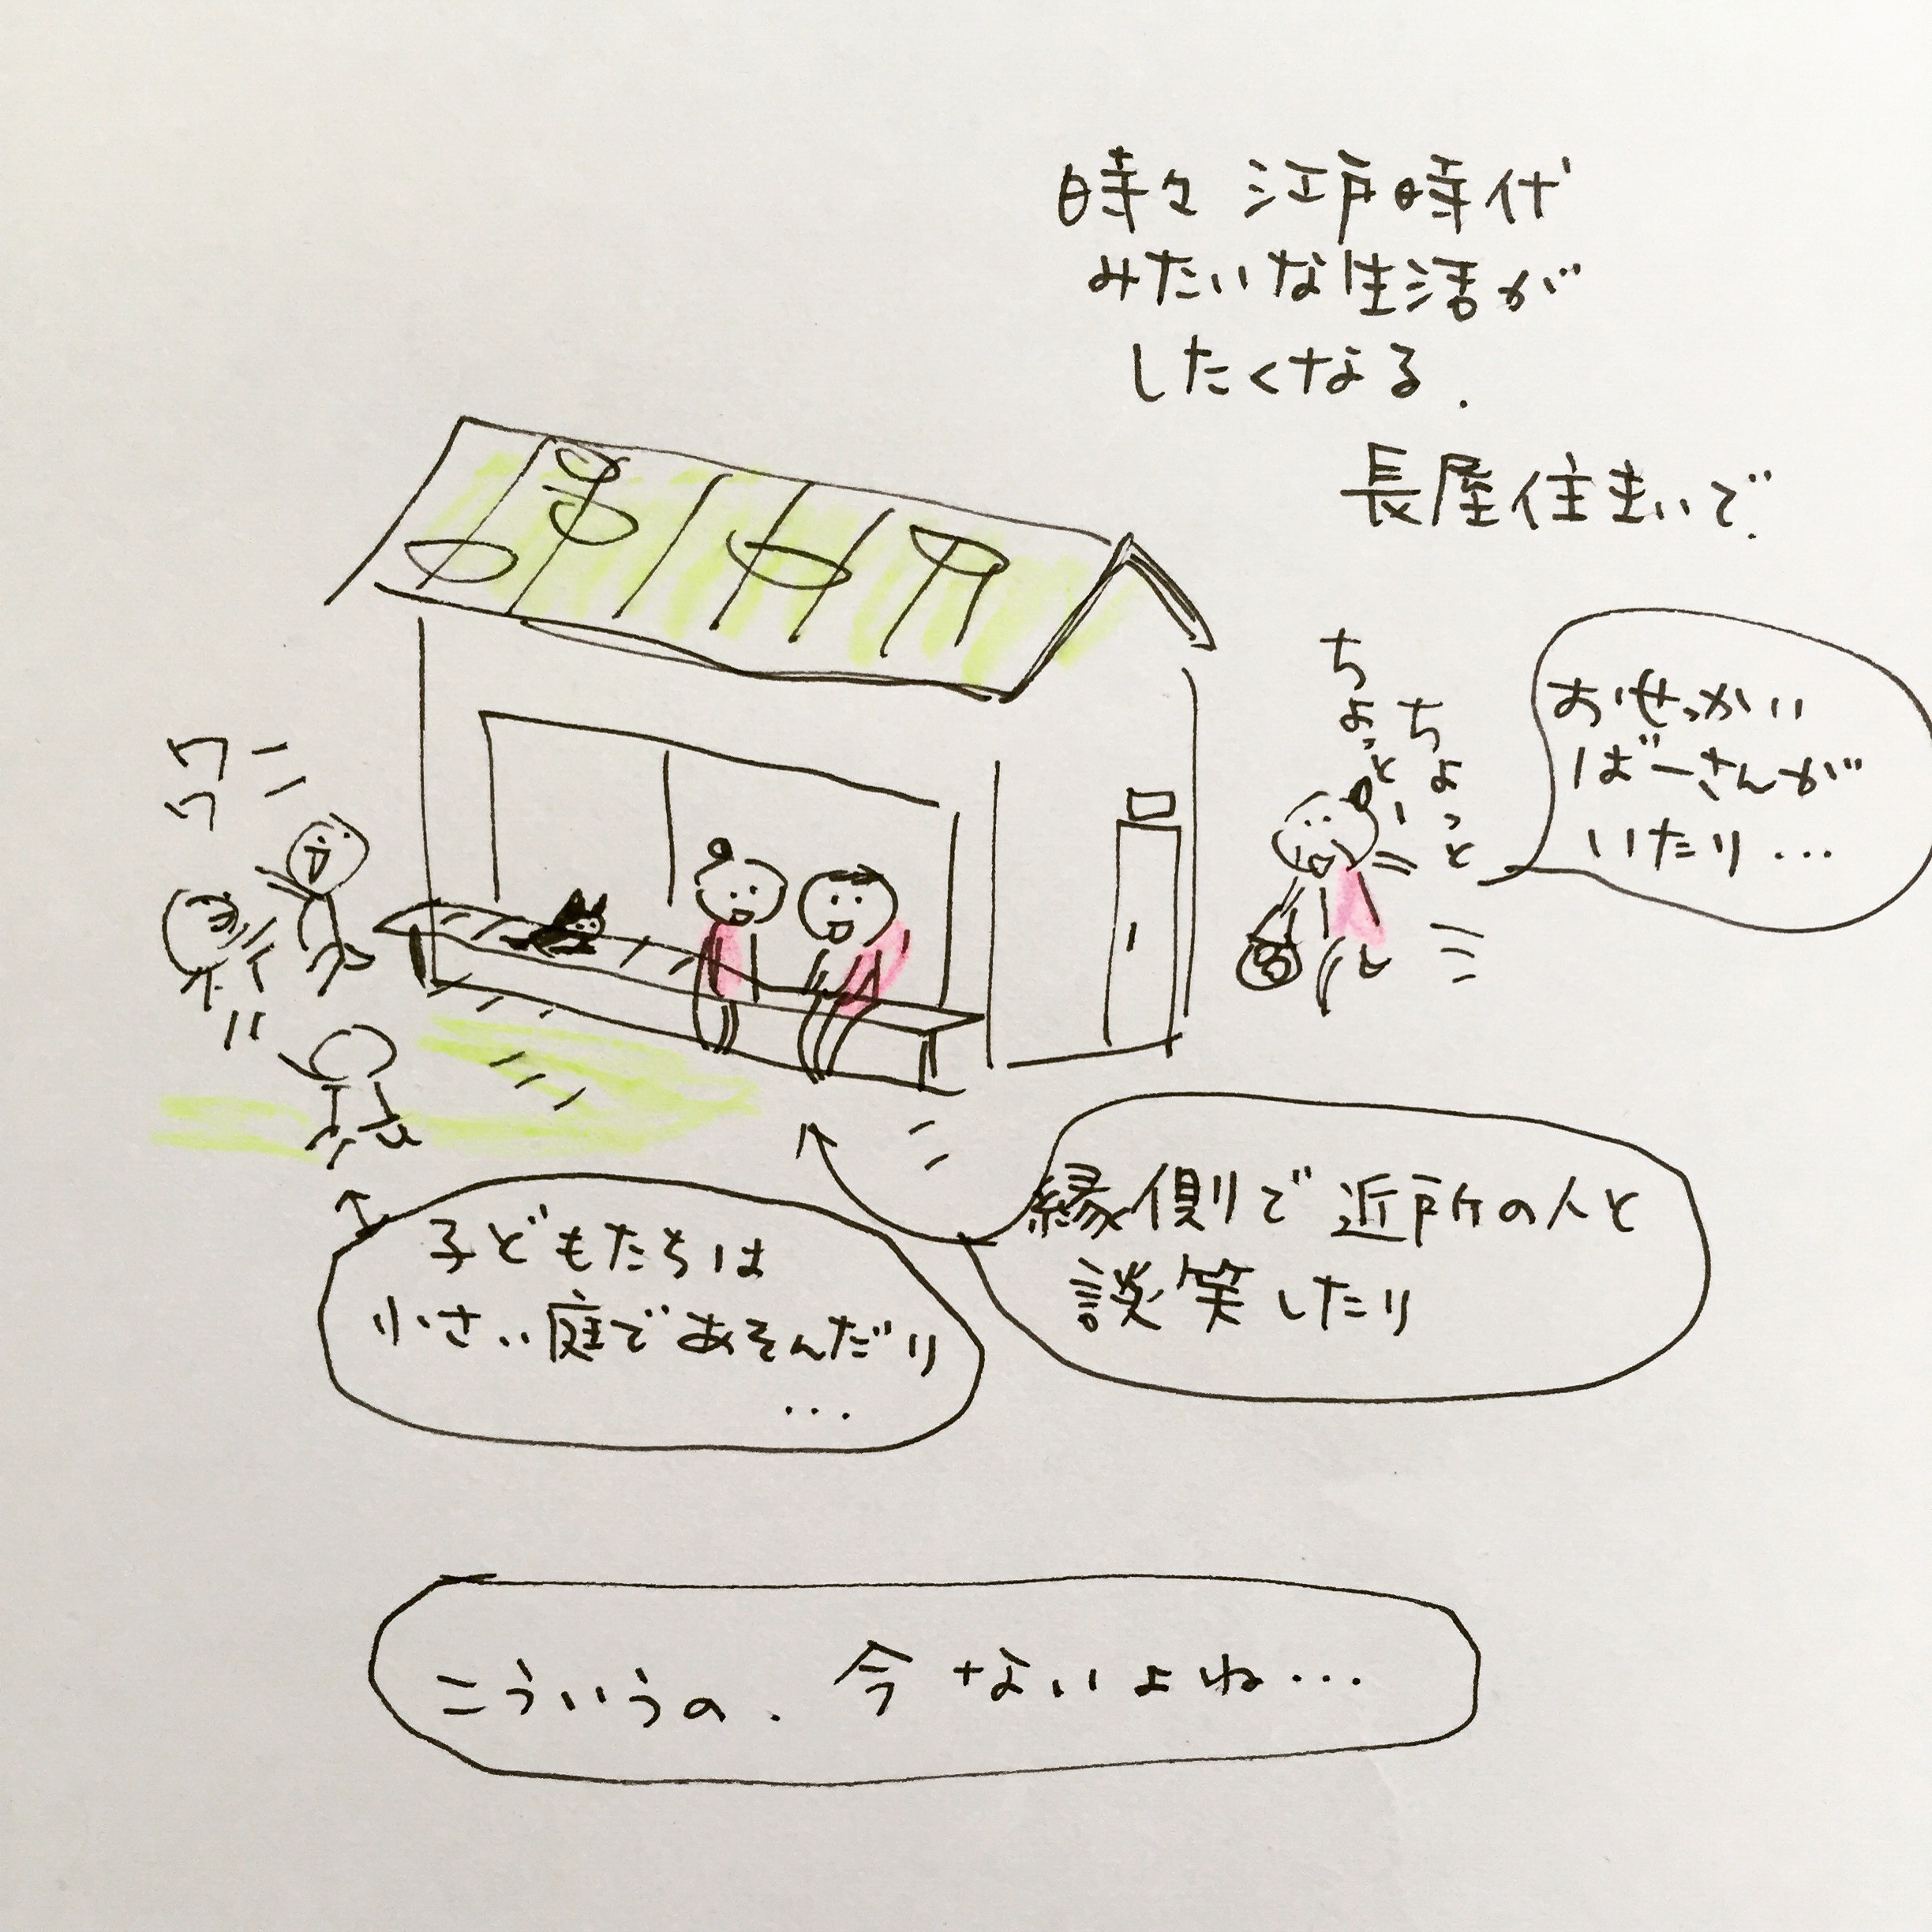 時々 江戸時代
みたいな生活が
したくなる.
長屋住まいで.
ちょっとー
ちょっと
おせっかい
ばーさんが
いたり...
ワー
ワー
縁側で近所の人と
談笑したり
子どもたちは
小さい庭であそんだり
...
こういうの、今ないよね...